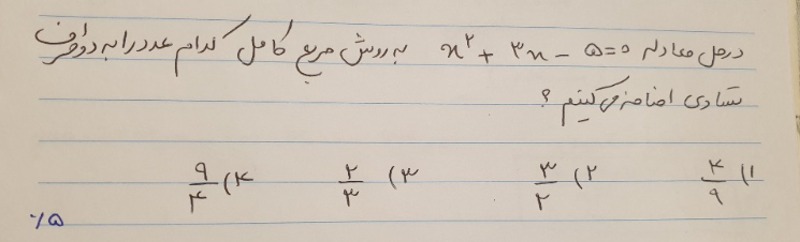 در حل معادله x² + ۳x - ۵ = ۰ به روش مربع کامل کدام عدد را به دو طرف
تساوی اضافه می کنیم ؟
۱) ۴/۹ ۲) ۳/۲ ۳) ۲/۳ ۴) ۹/۴
٪۵